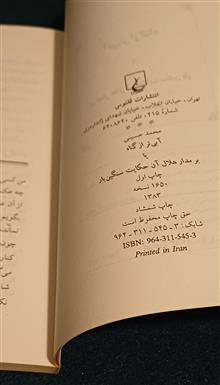 انتشارات ققنوس
تهران، خیابان انقلاب، خیابان شهدای ژاندارمری
شمارهٔ ۲۱۵، تلفن ۶۴۰۸۶۴۰
* * *
محمد حسینی
آبی‌تر از گناه
یا
بر مدار هلال آن حکایت سنگین‌بار
چاپ اول
۱۶۵۰ نسخه
۱۳۸۳
چاپ شمشاد
حق چاپ محفوظ است
شابک: ۳-۵۴۵-۳۱۱-۹۶۴
ISBN: 964-311-545-3
Printed in Iran
من کسی
از آن
بگویم
چون
کنار